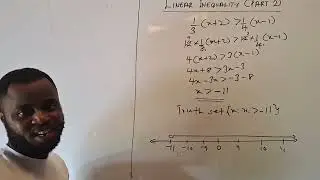 LINEAR INEQUALITY (PART 2)
1/3 (x+2) > 1/4 (x-1)
12 × 1/3 (x+2) > 12 × 1/4 (x-1)
4(x+2) > 3(x-1)
4x+8 > 3x-3
4x-3x > -3-8
x > -11
Truth set {x: x > -11}
-11 -10 -9 0 9 10 11